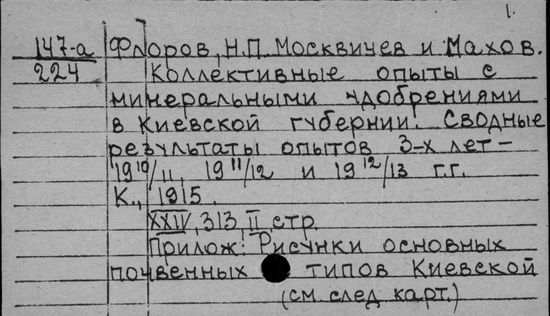 1.
147-а Флоров, Н.П. Москвичев и Махов.
224 Коллективные опыты с
минеральными удобрениями
в Киевской губернии. Сводные
результаты опытов 3-х лет-
1910/11, 1911/12 и 1912/13 г.г.
К., 1915.
XXIV, 313, II стр.
Прилож: Рисунки основных
почвенных типов Киевской
(см. след карт.)